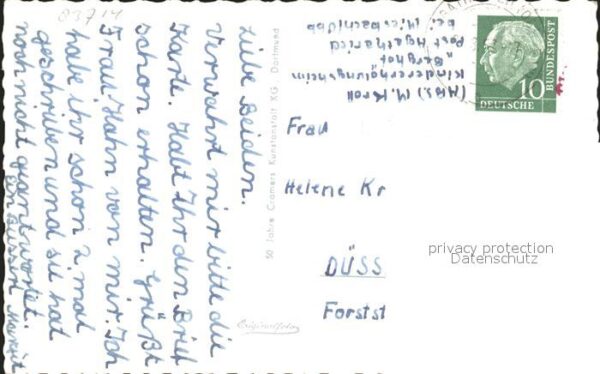 83714
Liebe Beiden.
Verwahrt mir bitte die
Karte. Habt Ihr den Brief
schon erhalten. Grüßt
Frau Hahn von mir. Ich
habe ihr schon 2 mal
geschrieben und sie hat
noch nicht geantwortet.
50 Jahre Cramers Kunstanstalt KG Dortmund
(Abs.) M. Kroll
Kindererholungsheim
"Berghof"
Post Agatharied
bei Miesbach/Obb
10
DEUTSCHE
BUNDESPOST
Frau
Helene Kr
DÜSS
Forstst
privacy protection
Datenschutz
Originalfoto